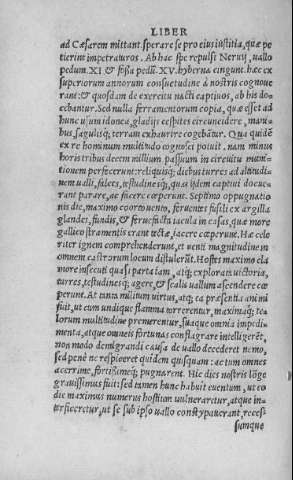 LIBER
ad Cæsarem mittant: sperare se pro eius iustitia, quæ pe
tierint impetraturos. Ab hac spe repulsi Neruij, uallo
pedum. XI & fossa pedū. XV. hyberna cingunt. hæc ex
superiorum annorum consuetudine à nostris cognoue
rant: & quosdam de exercitu nacti captiuos, ab his do-
cebantur. Sed nulla ferramentorum copia, quæ esset ad
hunc usum idonea, gladijs cespites circuncidere, mani-
bus, sagulisq; terram exhaurire cogebātur. Qua quidē
ex re hominum multitudo cognosci potuit, nam minus
horis tribus decem millium passuum in circuitu muni-
tionem perfecerunt: reliquisq; diebus turres ad altitudi-
nem ualli, falces, testudinesq;, quas ijdem captiui docue-
rant parare, ac facere cœperunt. Septimo oppugnatio
nis die, maximo coorto uento, feruentes fusili ex argilla
glandes, fundis, & feruefacta iacula in casas, quæ more
gallico stramentis erant tectæ, iacere cœperunt. Hæ cele
riter ignem comprehenderunt, et uenti magnitudine in
omnem castrorum locum distulerūt. Hostes maximo cla
more insecuti quasi parta iam, atq; explorata uictoria,
turres, testudinesq; agere, & scalis uallum ascendere cœ
perunt. At tanta militum uirtus, atq; ea præsentia animi
fuit, ut cum undique flamma torrerentur, maximaq; te-
lorum multitudine premerentur, suaque omnia impedi-
menta, atque omneis fortunas conflagrare intelligerēt,
non modo demigrandi causa de uallo decederet nemo,
sed penè ne respiceret quidem quisquam: ac tum omnes
acerrime, fortissimeq; pugnarent. Hic dies nostris lōge
grauissimus fuit: sed tamen hunc habuit euentum, ut eo
die maximus numerus hostium uulneraretur, atque in-
terficeretur, ut se sub ipso uallo constipauerant, recessi
sumque